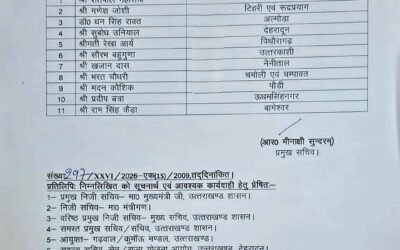 1 श्री सतपाल महाराज
2 श्री गणेश जोशी टिहरी एवं रूद्रप्रयाग
3 डॉ0 धन सिंह रावत अल्मोड़ा
4 श्री सुबोध उनियाल देहरादून
5 श्रीमती रेखा आर्य पिथौरागढ़
6 श्री सौरभ बहुगुणा उत्तरकाशी
7 श्री खजान दास नैनीताल
8 श्री भरत चौधरी चमोली एवं चम्पावत
9 श्री मदन कौशिक पौड़ी
10 श्री प्रदीप बत्रा ऊधमसिंहनगर
11 श्री राम सिंह कैड़ा बागेश्वर
(आर0 मीनाक्षी सुन्दरम्)
प्रमुख सचिव।
संख्या 297/XXVI/2026-एक(15)/2009,तद्दिनांकित।
प्रतिलिपिः निम्नलिखित को सूचनार्थ एवं आवश्यक कार्यवाही हेतु प्रेषितः-
1- प्रमुख निजी सचिव- मा0 मुख्यमंत्री जी, उत्तराखण्ड शासन।
2- निजी सचिव- मा0 मंत्रीगण।
3- वरिष्ठ प्रमुख निजी सचिव- मुख्य सचिव, उत्तराखण्ड शासन।
4- समस्त प्रमुख सचिव/सचिव, उत्तराखण्ड शासन।
5- आयुक्त- गढ़वाल/कुर्माऊ मण्डल, उत्तराखण्ड।